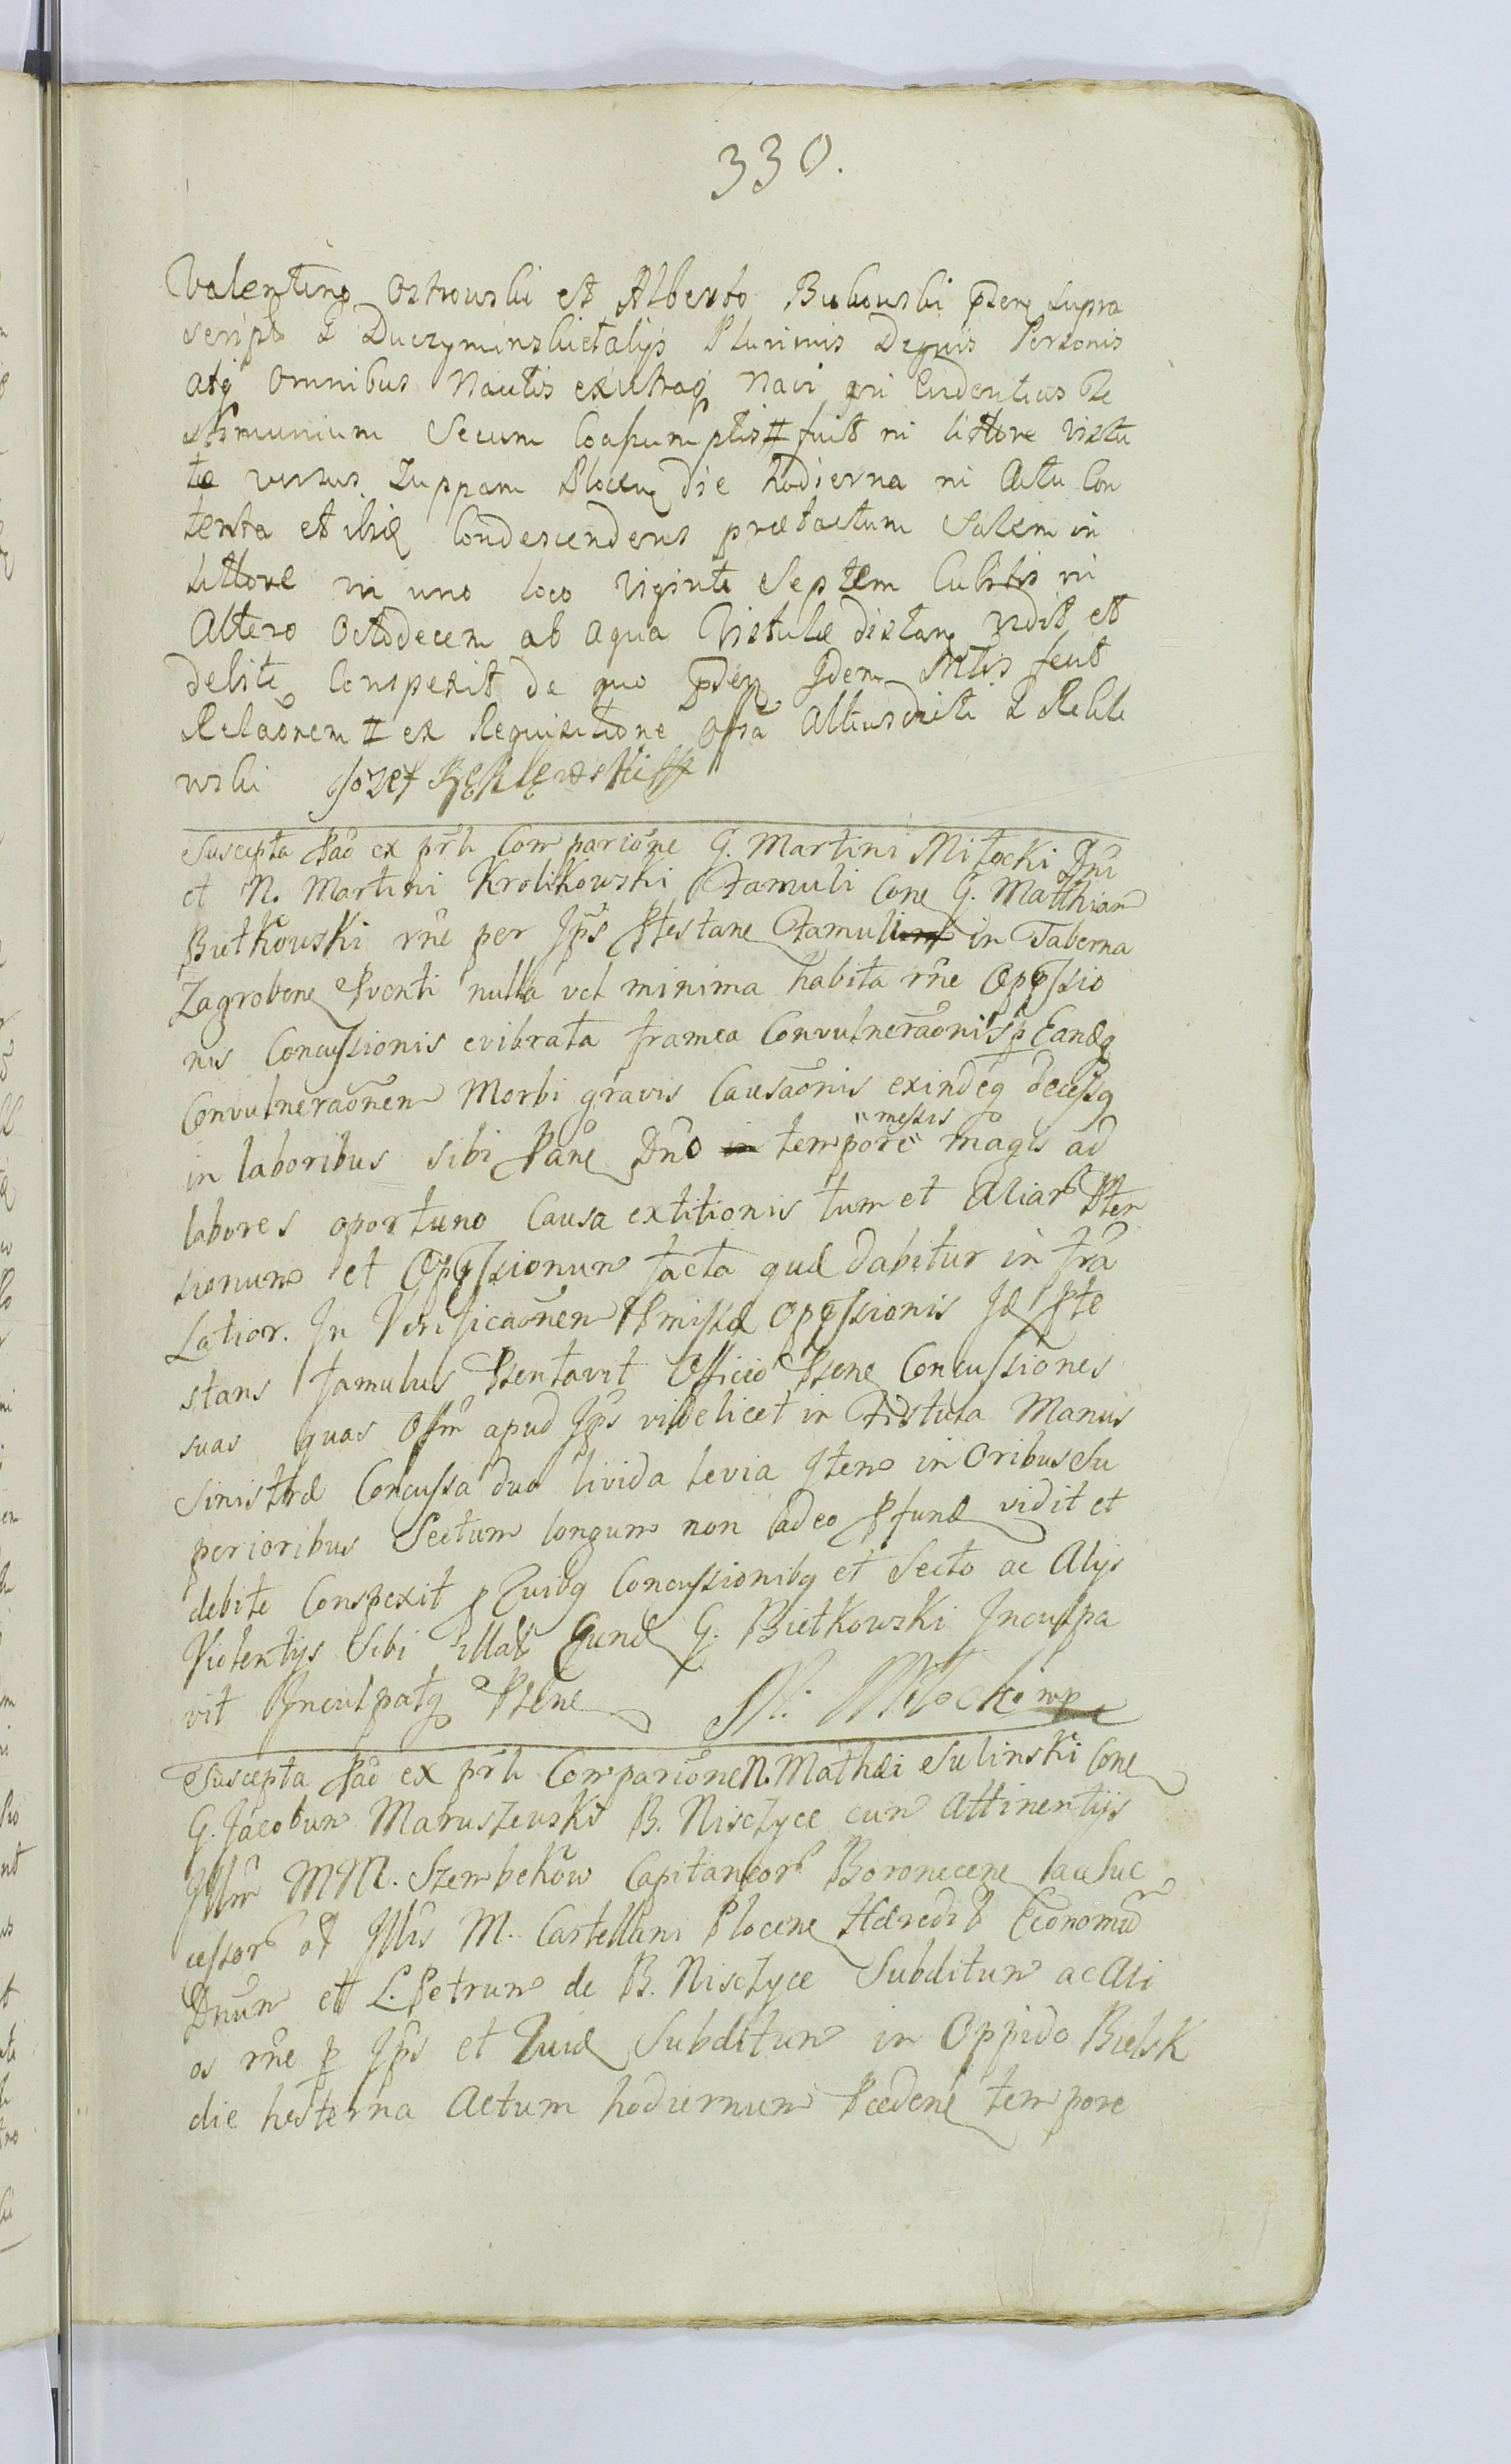 330.
Valentino Ostrowski et Alberto Bukowski pñtem supra
script G Duczyminski et alijs Plurimis Dignis Personis
atq omnibus Nautis ex utraq Navi pri Evidentius Te
stimunium Secum Coassumptis # fuit in littore Vistu
læ versus Zuppam Plocen die hodierna in Actu Con
tenta et ibiq Condescendens prætactum Salem in
Littore in uno loco viginti Septem Cubitis in
Altero Octodecem ab aqua Vistulæ distan vidit et
debite Conspexit de quo Idem Mtis fecit
Relãonem # ex Requisitione Offã Altius dicti G Rekle
wski Jozef Ręklewski
Suscepta Pãõ ex prli Compariõne G. Martini Milocki Dñi
et N. Martini Krolikowski Famuli Cone G. Matthiam
Bietkowski rñe per Jps Ptestane Famuli in Taberna
Zagrobene Pventi nulla vel minima habita rñe Oppssio
nis Concussionis evibrata framea Convulnerãonis p Eandq
Convulnerãonem Morbi gravis Causãonis exindeq decessq
in laboribus sibi Pane Dño tempore messis magis ad
labores oportuno Causa extitionis tum et Aliar Pten
sionum et Oppssionum facta quæ dabitur in frã
Latior. In Verificãonem Pmissæ Oppssionis Id Pte
stans famulus Psentavit Officio Psene Concussiones
suas quas Offm apud Jps videlicet in Fistula Manus
Sinistræ Concussa duo livida levia Item in Oribus Su
perioribus Sectum longum non adeo Pfund vidit et
debite Conspexit p Quibq Concussionibq et Secto ac Alijs
Violentijs Sibi illat Eund G. Bietkowski Inculpa
vit Inculpatq Psene M. Milocki mp
Suscepta Pãõ ex prli Compariõne N. Mathæi Sulinski Cone
G. Jacobum Maruszewski B. Nisczyce cum Attinentijs
Jllm MM. Szembekow Capitaneor Boronecene ac Suc
cessor et Jllis M. Castellani Plocene Hæredit Economũ
Dnum et L. Petrum de B. Nisczyce Subditum ac Ali
os rñe p Jps et Quid Subditum in Oppido Bielsk
die hesterna Actum hodiernum Pcedene tempore